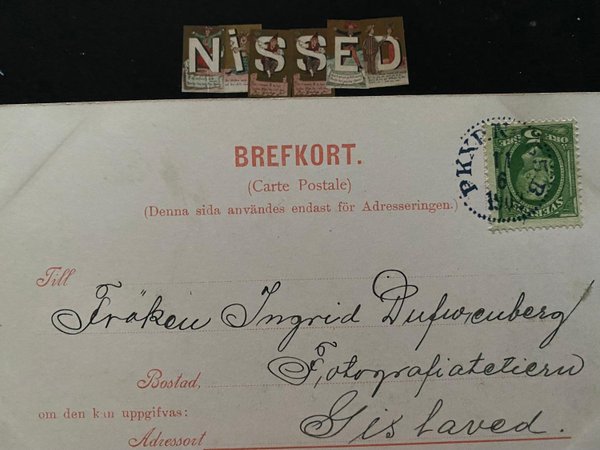 NiSSED
BREFKORT.
(Carte Postale)
(Denna sida användes endast för Adresseringen.)
PKXP N
Till
Fröken Ingrid Dufwenberg
Fotografiateliern
Bostad,
om den kan uppgifvas:
Gislaved.
Adressort